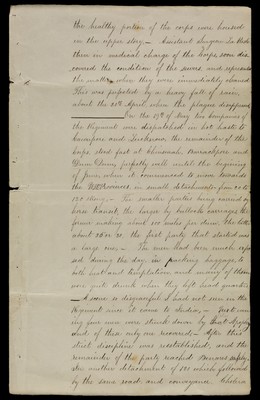 the healthy portion of the corps were housed
in the upper story. Assistant Surgeon
then in medical charge of the troops, soon dis
covered the condition of the sewers and represented
the matter, when they were immediately cleaned
This was perfected by a heavy fall of rain,
about the 20th April, when the plague disappeared
On the 19th of May two companies of
the Regiment were dispatched in hot haste to
Cawnpore and Lucknow, the remainder of the
corps stood fast at Chinsurah, Barrackpore and
Dum Dum, perfectly well until the beginning
of June, when it commenced to move towards
the NW Provinces, in small detachments from 20 to
120 strong. The smaller parties being carried by
horse transit, the larger by bullock carriages, the
former making about 100 miles per diem, the latter
about 25 or 30, the first party that started was
a large one. The men had been much expo
sed during the day in packing baggage, to
both heat and temptation, and many of them
were quite drunk when they left head quarters
A scene so disgraceful I had not seen in the
Regiment since it came to India.
ing four men were struck down by
and of these only one recovered. After this
strict discipline was reestablished, and the
remainder of the party reached Benares safely,
Another detachment of 100 which followed
by the same road and conveyance, Cholera